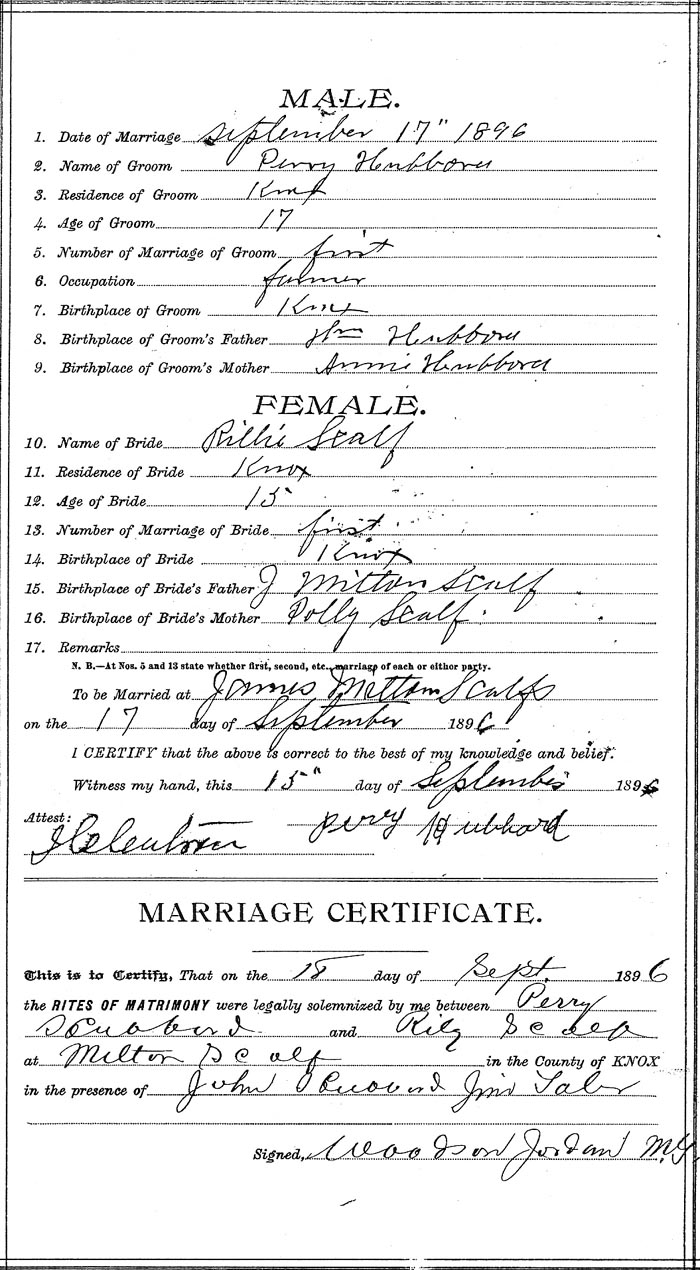 MALE.
1. Date of Marriage September 17" 1896
2. Name of Groom Perry Hubbard
3. Residence of Groom Knox
4. Age of Groom 17
5. Number of Marriage of Groom first
6. Occupation farmer
7. Birthplace of Groom Knox
8. Birthplace of Groom's Father Wm Hubbard
9. Birthplace of Groom's Mother Annie Hubbard
FEMALE.
10. Name of Bride Rillie Scalf
11. Residence of Bride Knox
12. Age of Bride 15
13. Number of Marriage of Bride first
14. Birthplace of Bride Knox
15. Birthplace of Bride's Father J Milton Scalf
16. Birthplace of Bride's Mother Polly Scalf.
17. Remarks
N. B.—At Nos. 5 and 13 state whether first, second, etc., marriage of each or either party.
To be Married at James Milton Scalfs
on the 17 day of September 1896
I CERTIFY that the above is correct to the best of my knowledge and belief.
Witness my hand, this 15" day of September 1896
Attest: Perry Hubbard
MARRIAGE CERTIFICATE.
This is to Certify, That on the 18 day of Sept. 1896
the RITES OF MATRIMONY were legally solemnized by me between Perry
and Rily Scalf
at Milton Scalf in the County of KNOX
in the presence of John Jim
Signed, Woodson Jordan